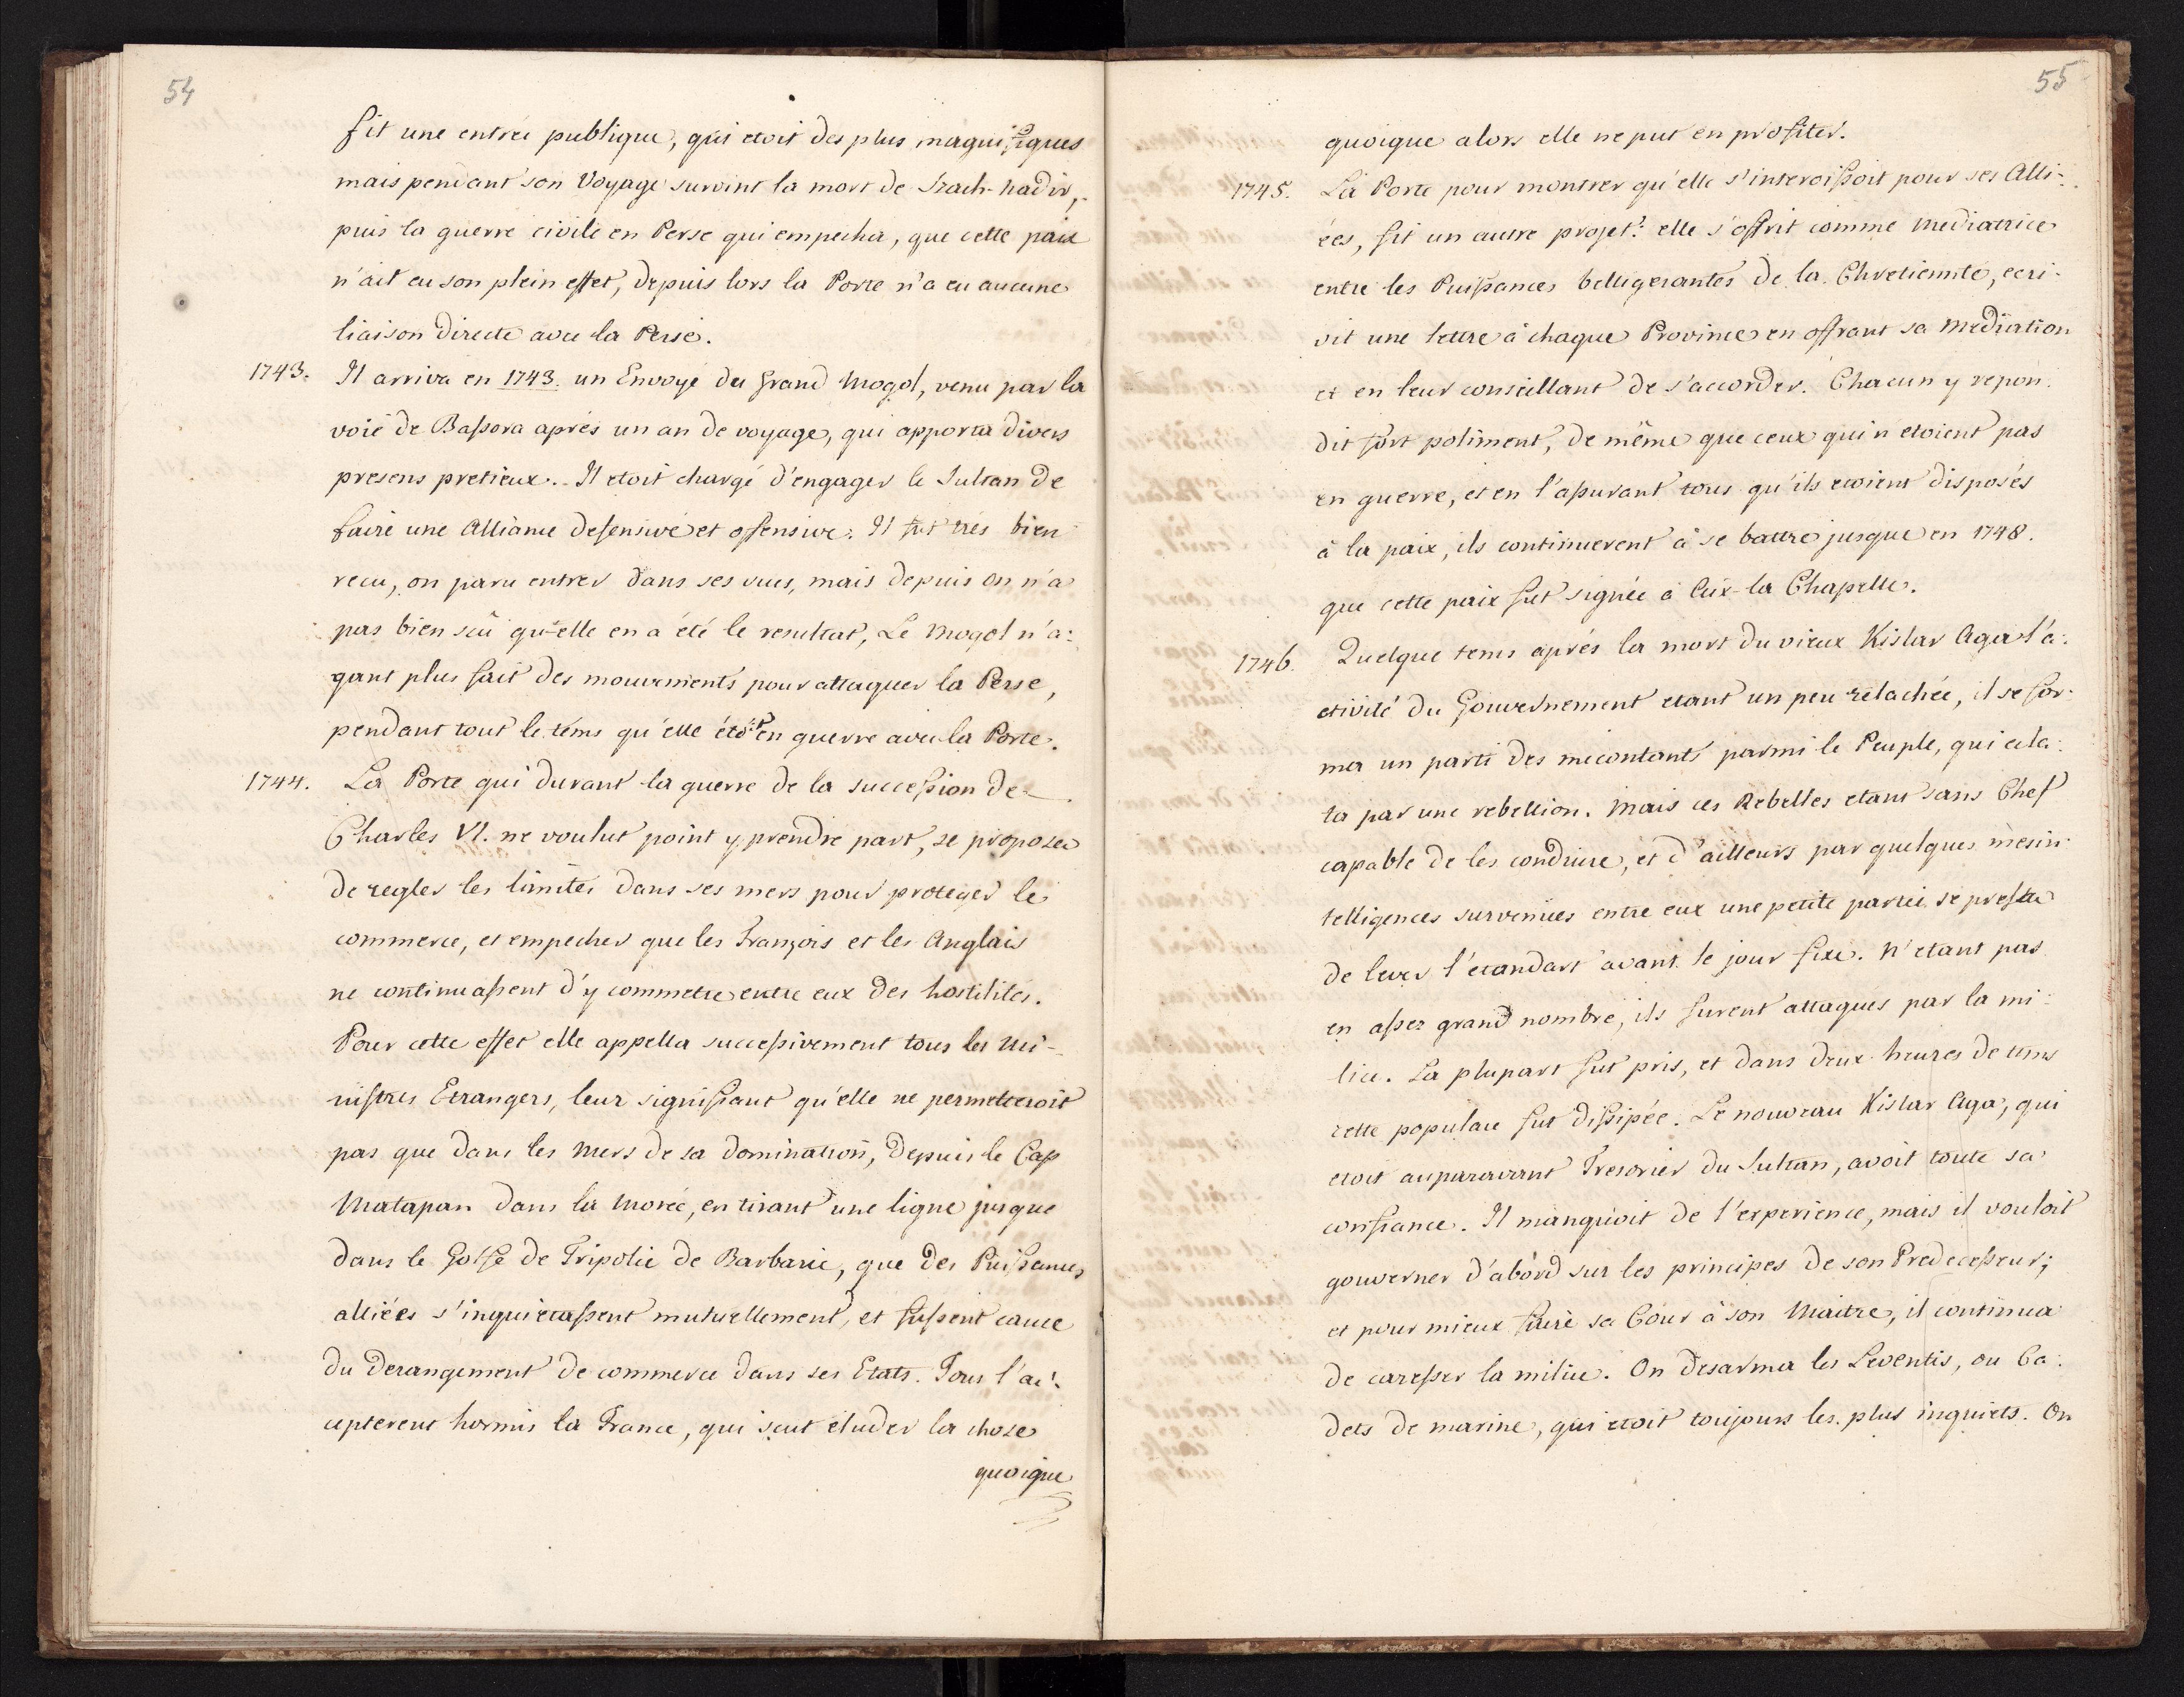 54
fit une entrée publique, qui etoit des plus magnifiques
mais pendant son Voyage survint la mort de Szach-nadir,
puis la guerre civile en Perse qui empecha, que cette paix
n'ait eu son plein effet, depuis lors la Porte n'a eu aucune
liaison directe avec la Perse.
1743. Il arriva en 1743. un Envoyé du Grand Mogol, venu par la
voie de Bassora aprés un an de voyage, qui apporta divers
presens pretieux. Il etoit chargé d'engager le Sultan de
faire une Alliance defensive et offensive: Il fut trés bien
recu, on paru entrer dans ses vues, mais depuis on n'a
pas bien scû qu-elle en a été le resultat, Le Mogol n'a-
yant plus fait des mouvements pour attaquer la Perse,
pendant tout le tems qu'elle étoit en guerre avec la Porte.
1744. La Porte qui durant la guerre de la succession de
Charles VI. ne voulut point y prendre part, se proposa
de regler les limites dans ses mers pour proteger le
commerce, et empecher que les François et les Anglais
ne continuassent d'y commettre entre eux des hostilités.
Pour cette effet elle appella successivement tous les Mi-
nistres Etrangers, leur signifiant qu'elle ne permetteroit
pas que dans les Mers de sa domination, depuis le Cap
Matapan dans la Morée, en tirant une ligne jusque
dans le Golfe de Tripolie de Barbarie, que des Puissances
alliées s'inquietassent mutuellement, et fussent cause
du derangement de commerce dans ses Etats. Tous l'ac-
cepterent hormis la France, qui scut éluder la chose
quoique
55
quoique alors elle ne put en profiter.
1745. La Porte pour montrer qu'elle s'interoissoit pour ses Alli-
ées, fit un autre projet: elle s'offrit comme Mediatrice
entre les Puissances belligerantes de la Chretienneté, ecri-
vit une lettre à chaque Province en offrant sa Mediation
et en leur conseillant de s'accorder. Chacun y repon-
dit fort poliment, de même que ceux qui n'etoient pas
en guerre, et en l'assurant tous qu'ils etoient disposés
à la paix, ils continuerent à se battre jusque en 1748.
que cette paix fut signée à Aix-la Chapelle.
1746. Quelque tems aprés la mort du vieux Kislar Aga l'a-
ctivité du Gouvernement etant un peu relachée, il se for-
ma un parti des mecontants parmi le Peuple, qui ecla-
ta par une rebellion. Mais ces Rebelles etant sans Chef
capable de les conduire, et d'ailleurs par quelques mesin-
telligences survenues entre eux une petite partie se pressa
de lever l'etandart avant le jour fixe. N'etant pas
en assez grand nombre, ils furent attaqués par la mi-
lice. La plupart fut pris, et dans deux heures de tems
cette populace fut dissipée. Le nouveau Kislar Aga, qui
etoit auparavant Tresorier du Sultan, avoit toute sa
confiance. Il manquoit de l'experience, mais il vouloit
gouverner d'abord sur les principes de son Predecesseur;
et pour mieux faire sa Cour à son Maitre, il continua
de caresser la milice. On desarma les Leventis, ou Ca-
dets de marine, qui etoit toujours les plus inquiets. On